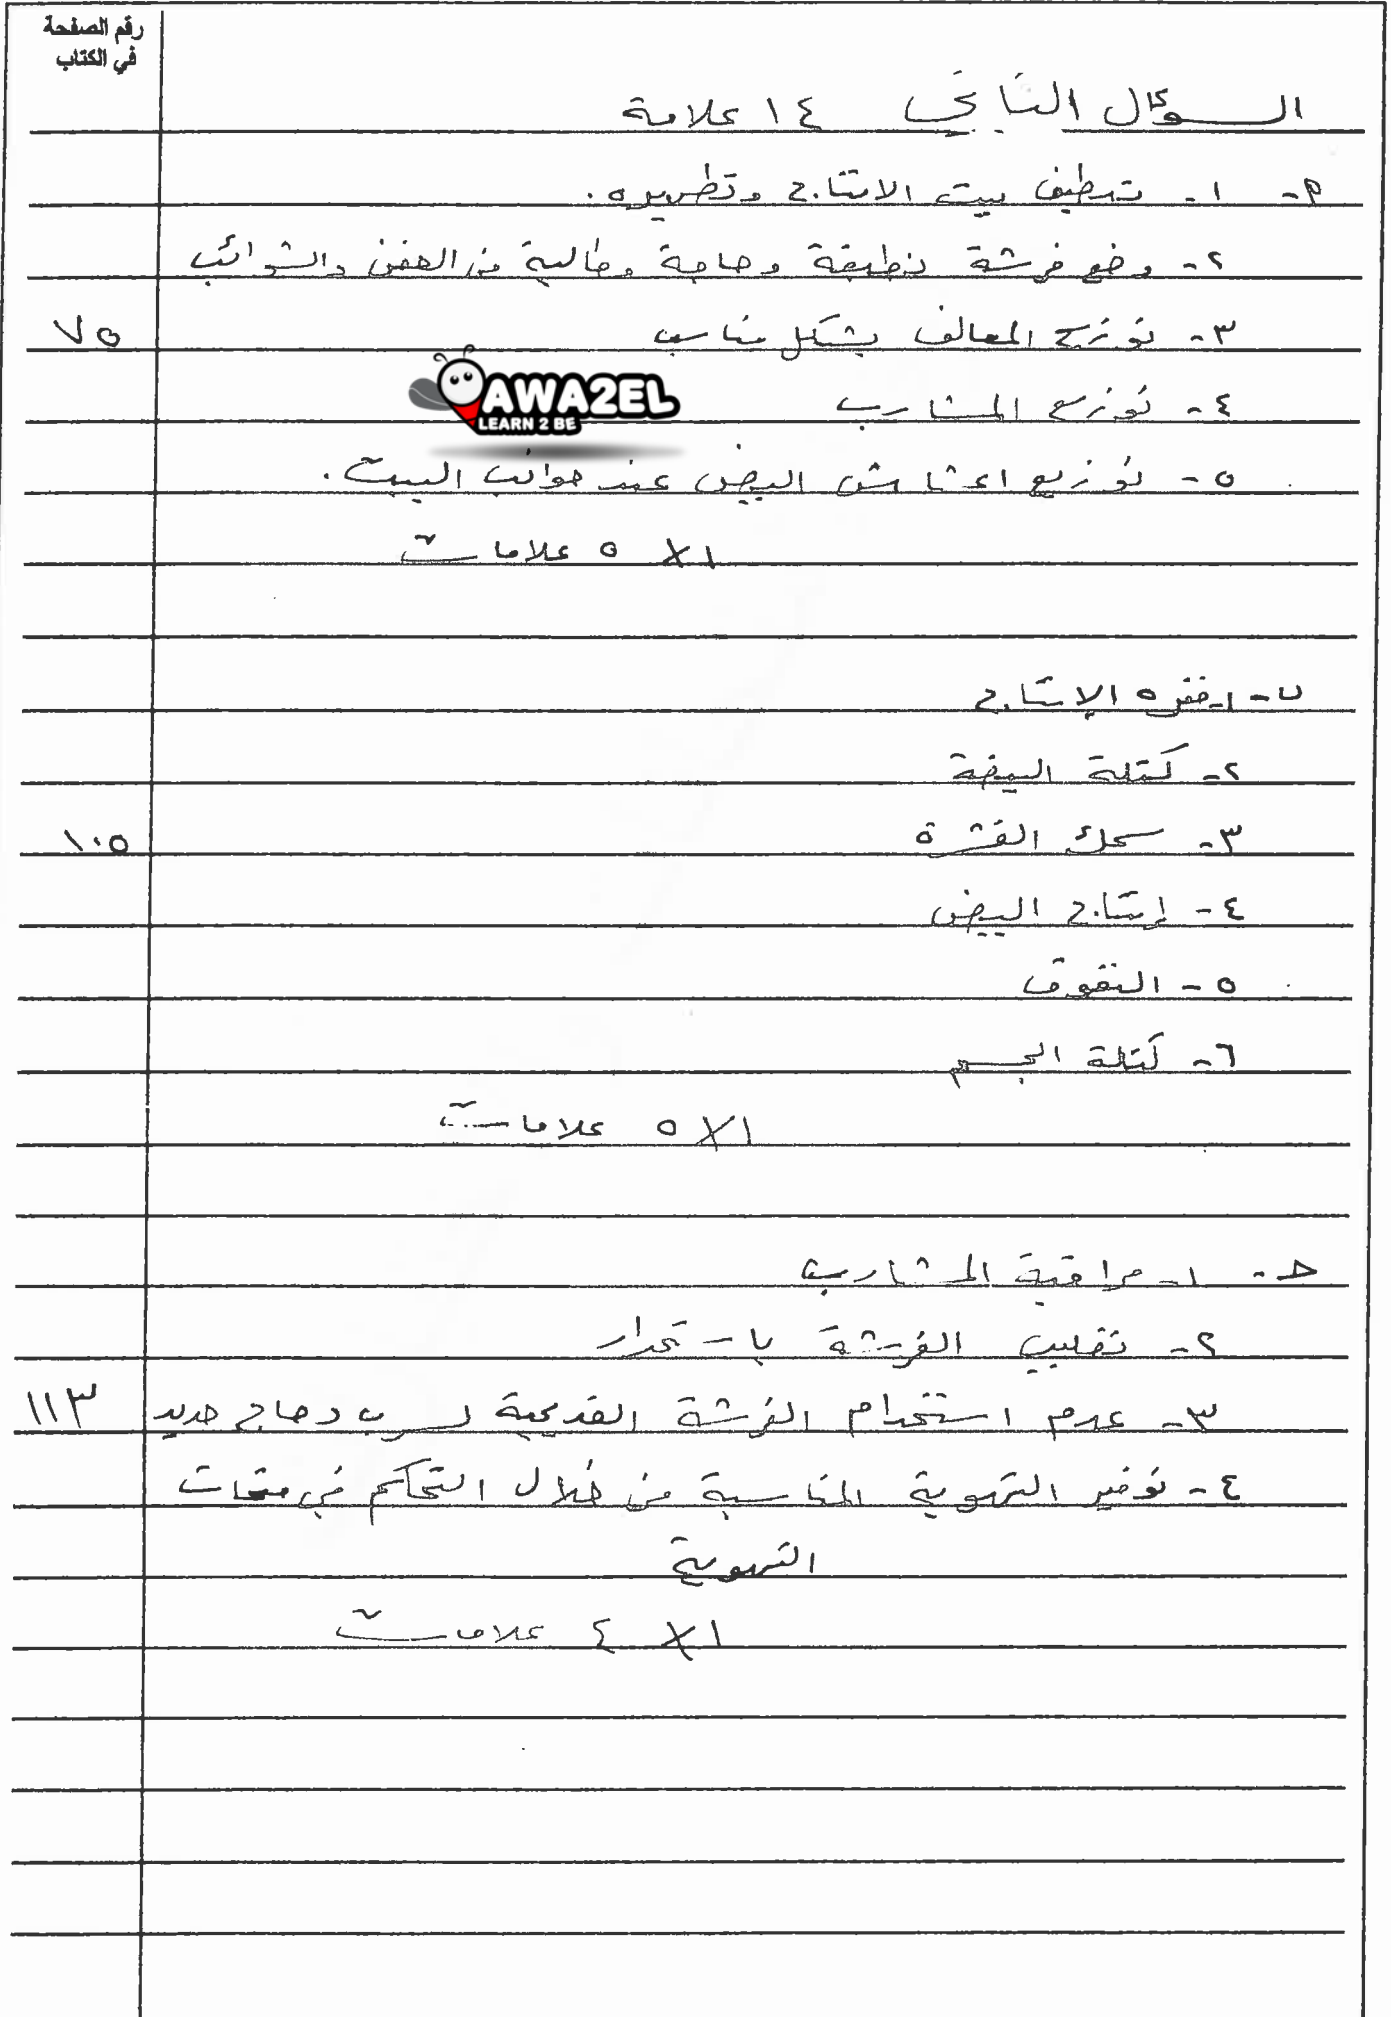 رقم الصفحة
في الكتاب
السؤال الثاني ١٤ علامة
٢- ١- تنظيف بيت الانتاج وتطهيره.
٢- وضع فرشة نظيفة وجافة وخالية من العفن والشوائب
٣- توزيع المعالف بشكل مناسب
٧٥
AWA2EL
LEARN 2 BE
٤- توزيع المشارب
٥- توزيع اعشاش البيض عند جوانب البيت.
١×٥ علامات
ب- ١- فترة الإنتاج
٢- كتلة البيضة
٣- سمك القشرة
١٠٥
٤- إنتاج البيض
٥- النفوق
٦- كتلة الجسم
١×٥ علامات
ج- ١- مراقبة المشارب
٢- تقليب الفرشة باستمرار
٣- عدم استخدام الفرشة القديمة لسرب دجاج جديد
١١٣
٤- توفير التهوية المناسبة من خلال التحكم في فتحات
التهوية
١×٤ علامات